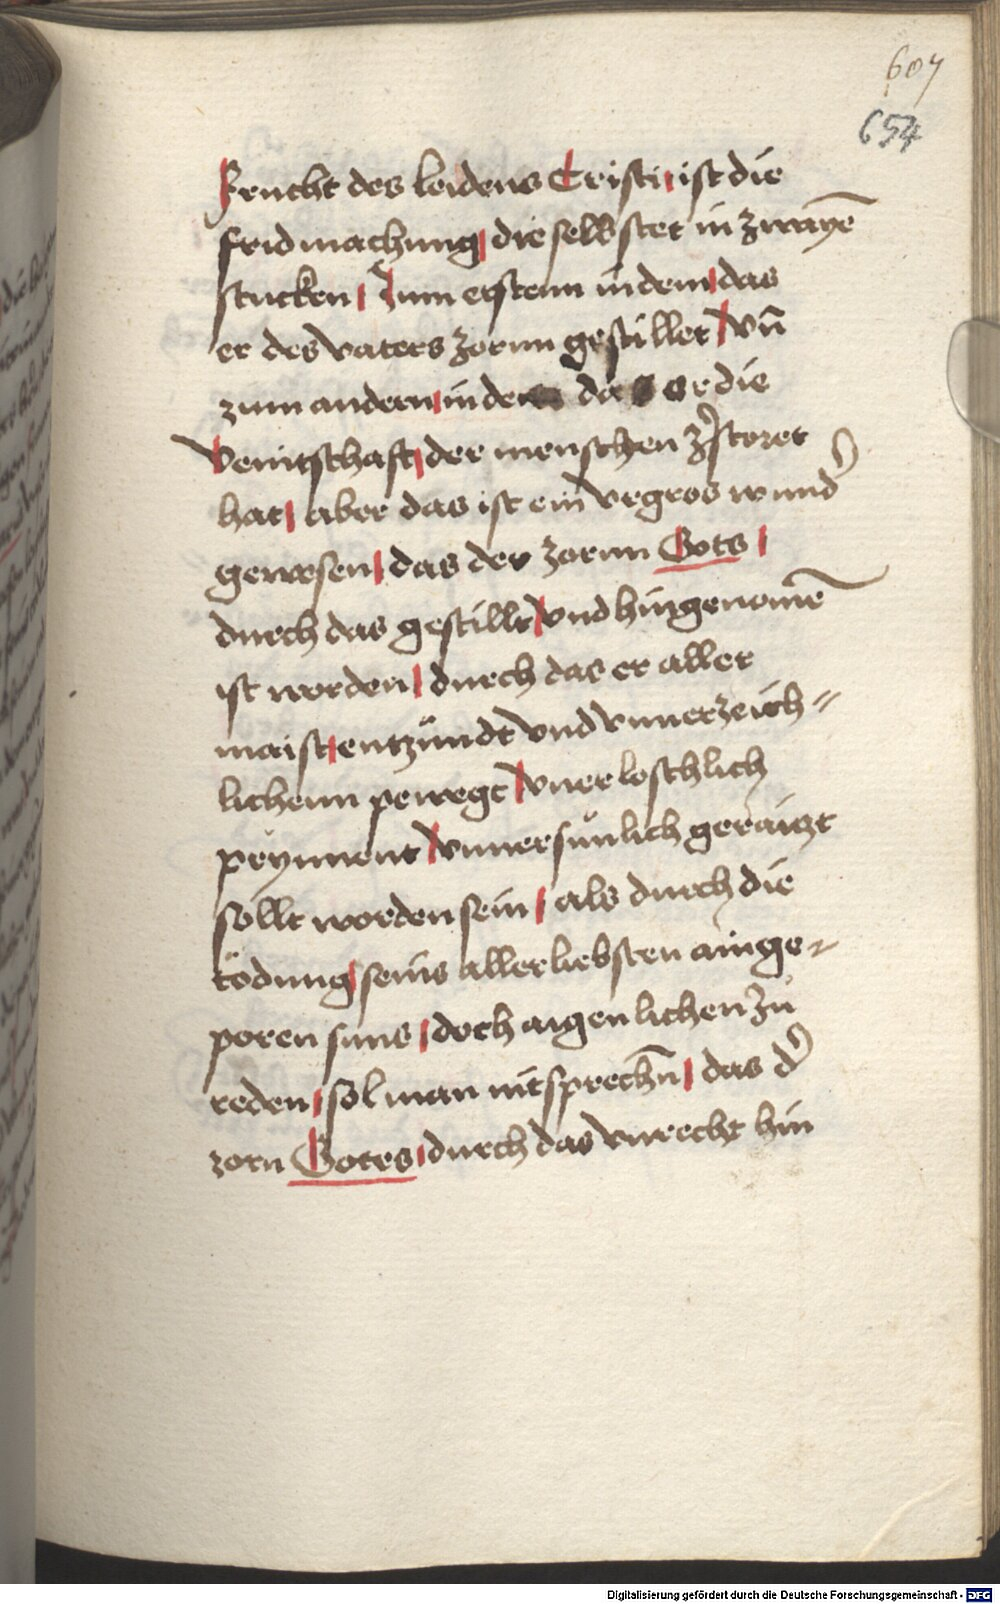 607
654
Frucht des leidens Cristi ist die
fridmachung die selb stet in zwayē
stucken Zum erstenn in dem das
er des vaters zornn gestillet vn̄
zum andern in dem das er die
veintschaft der menschen zꝰstoret
hat aber das ist ein vrgros wundꝰ
gewesen das der zornn Gots
durch das gestillt vnd hingenomē
ist worden durch das er aller
maist entzündt vnd vnuerzeich⸗
lichenn pewegt vnerloschlich
prynnent vnuersünlich geraitzt
sollt worden sein als durch die
tödung seins allerliebsten ainge⸗
poren suns doch aigenlichen zu
reden sol man nit sprechn̄ das dꝰ
zorn Gotes durch das vnrecht hin
Digitalisierung gefördert durch die Deutsche Forschungsgemeinschaft - DFG